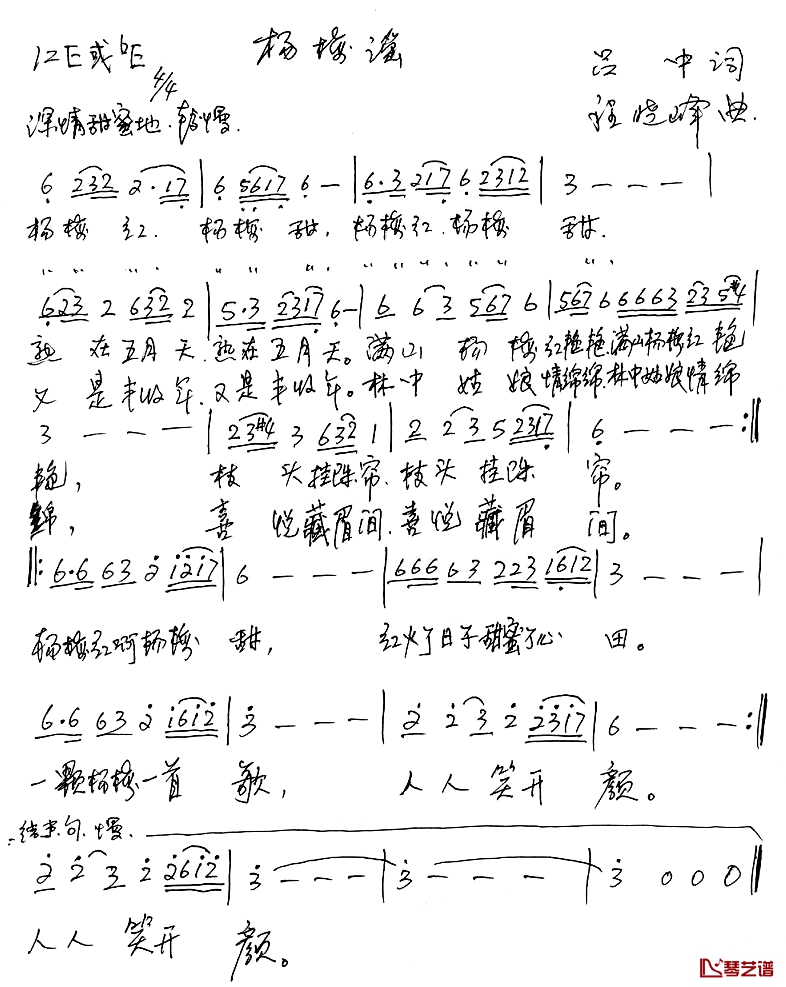 杨梅谣
1=E或bE 4/4
吕 中词
程晓峰曲.
深情甜蜜地.较慢.
6 232 2·17 | 6 5617 6 — | 6·3 217 6 2312 | 3 — — — |
杨梅 红. 杨梅 甜, 杨梅红.杨梅 甜.
" " " " " " " " " " "
623 2 632 2 | 5·3 2317 6 — | 6 6 3 567 6 | 567 6 6663 235#4 |
熟 在五月天.熟在五月天。满山 杨 梅红艳艳.满山杨梅红艳
又 是丰收年.又是丰收年。林中 姑 娘情绵绵.林中姑娘情绵
3 — — — | 23#4 3 632 1 | 2 2 3 5 2317 | 6 — — — :||
艳, 枝 头挂珠帘.枝头挂珠 帘。
绵, 喜 悦藏眉间.喜悦藏眉 间。
||: 6·6 63 2 1217 | 6 — — — | 666 63 223 1612 | 3 — — — |
杨梅红啊杨梅 甜, 红火了日子甜蜜了心 田。
6·6 63 2 1612 | 3 — — — | 2 2 3 2 2317 | 6 — — — :||
一颗杨梅一首 歌, 人人 笑开 颜。
结束句.慢.
2 2 3 2 2612 | 3 — — — | 3 — — — | 3 0 0 0 ||
人人 笑开 颜。
琴艺谱